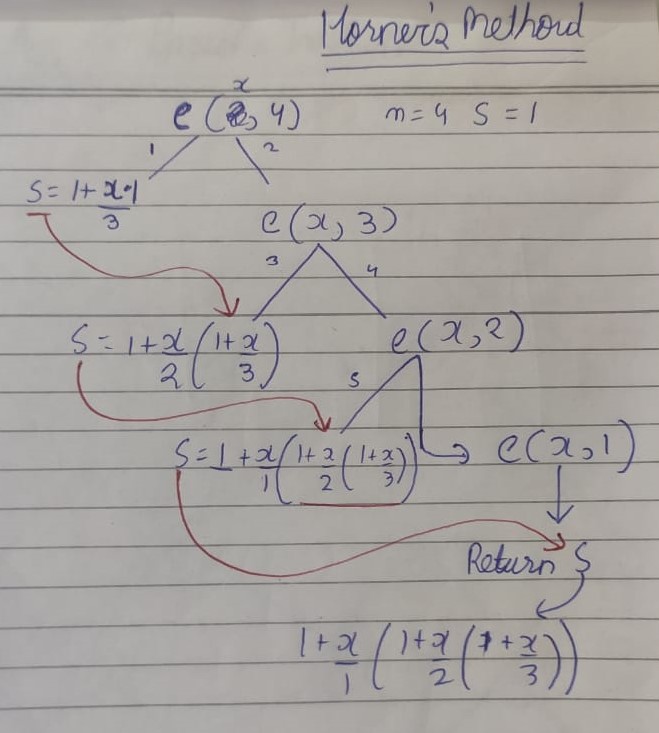 Horner's Methord
e(x, 4) n=4 S=1
1 2
S = 1+x·1/3
e(x, 3)
3 4
S = 1+x/2(1+x/3)
e(x,2)
5
S = 1+x/1(1+x/2(1+x/3))
e(x,1)
Return S
1+x/1(1+x/2(1+x/3))